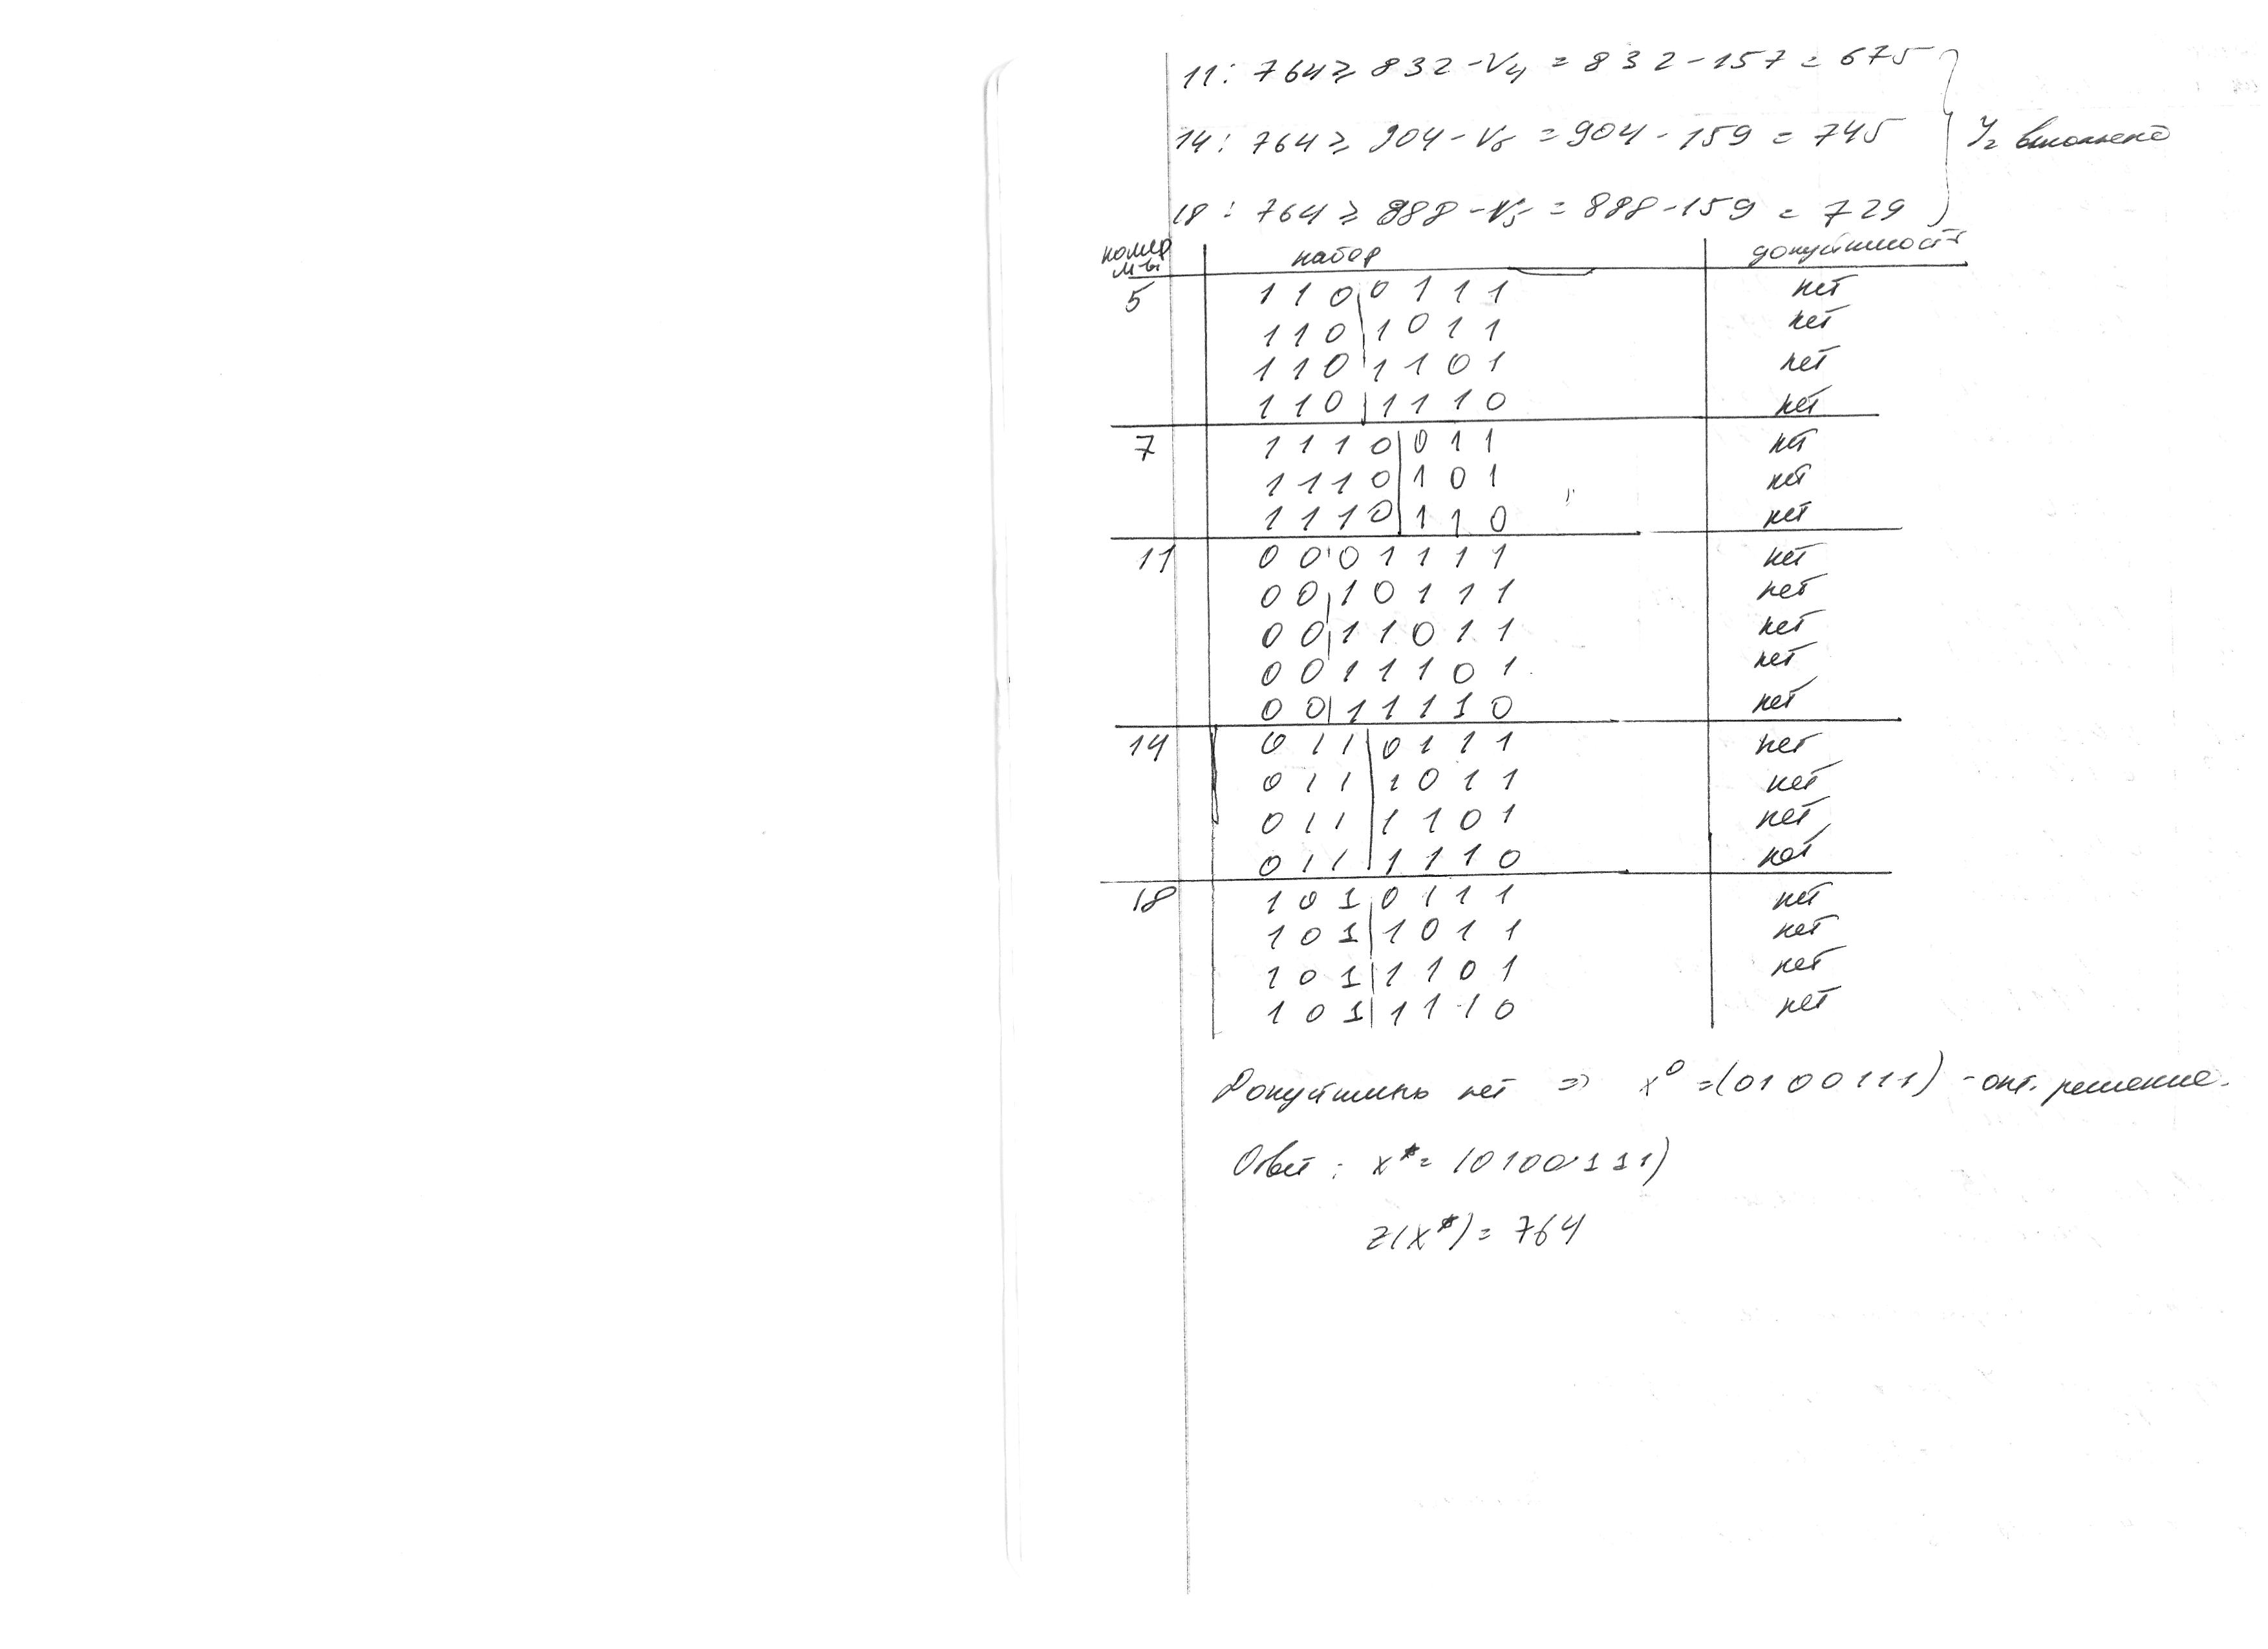 11: 764 ≥ 832 - V₄ = 832 - 157 = 675
14: 764 ≥ 904 - V₅ = 904 - 159 = 745
У₂ выполнено
18: 764 ≥ 888 - V₅ = 888 - 159 = 729
номер м-ы набор допустимость
5 1 1 0 | 0 1 1 1 нет
1 1 0 | 1 0 1 1 нет
1 1 0 | 1 1 0 1 нет
1 1 0 | 1 1 1 0 нет
7 1 1 1 0 | 0 1 1 нет
1 1 1 0 | 1 0 1 нет
1 1 1 0 | 1 1 0 нет
11 0 0 | 0 1 1 1 1 нет
0 0 | 1 0 1 1 1 нет
0 0 | 1 1 0 1 1 нет
0 0 1 1 1 0 1 нет
0 0 | 1 1 1 1 0 нет
14 0 1 1 | 0 1 1 1 нет
0 1 1 | 1 0 1 1 нет
0 1 1 | 1 1 0 1 нет
0 1 1 | 1 1 1 0 нет
18 1 0 1 | 0 1 1 1 нет
1 0 1 | 1 0 1 1 нет
1 0 1 | 1 1 0 1 нет
1 0 1 | 1 1 1 0 нет
нет => x⁰ = (0100111) - опт. решение.
Ответ: x* = (0100111)
z(x*) = 764